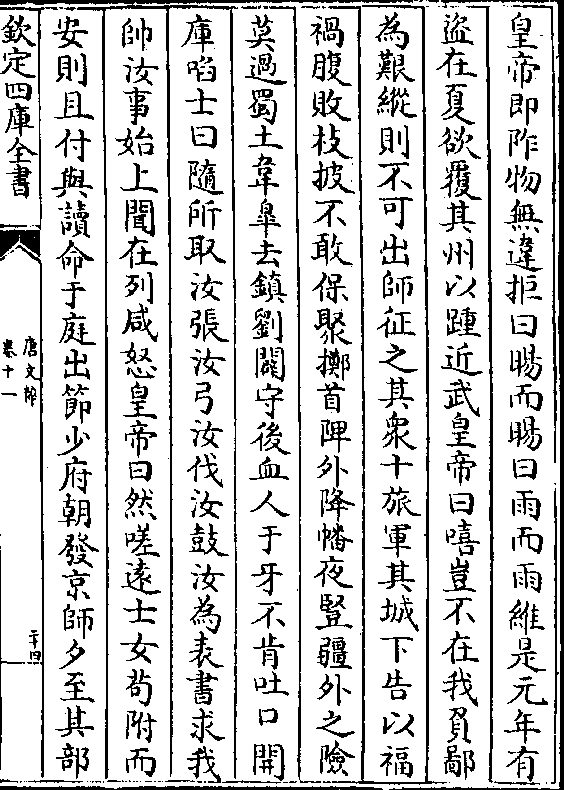 皇帝即阼物無違拒曰暘而暘曰雨而雨維是元年有
盜在夏欲覆其州以踵近武皇帝曰嘻豈不在我負鄙
為艱縱則不可出師征之其衆十旅軍其城下告以福
禍腹敗枝披不敢保聚擲首陴外降幡夜豎疆外之險
莫過蜀土韋臯去鎮劉闢守後血人于牙不肯吐口開
庫啗士曰隨所取汝張汝弓汝伐汝鼓汝為表書求我
帥汝事始上聞在列咸怒皇帝曰然嗟逺士女茍附而
安則且付與讀命于庭出節少府朝發京師夕至其部
欽定四庫全書
唐文粹
卷十一
二十四